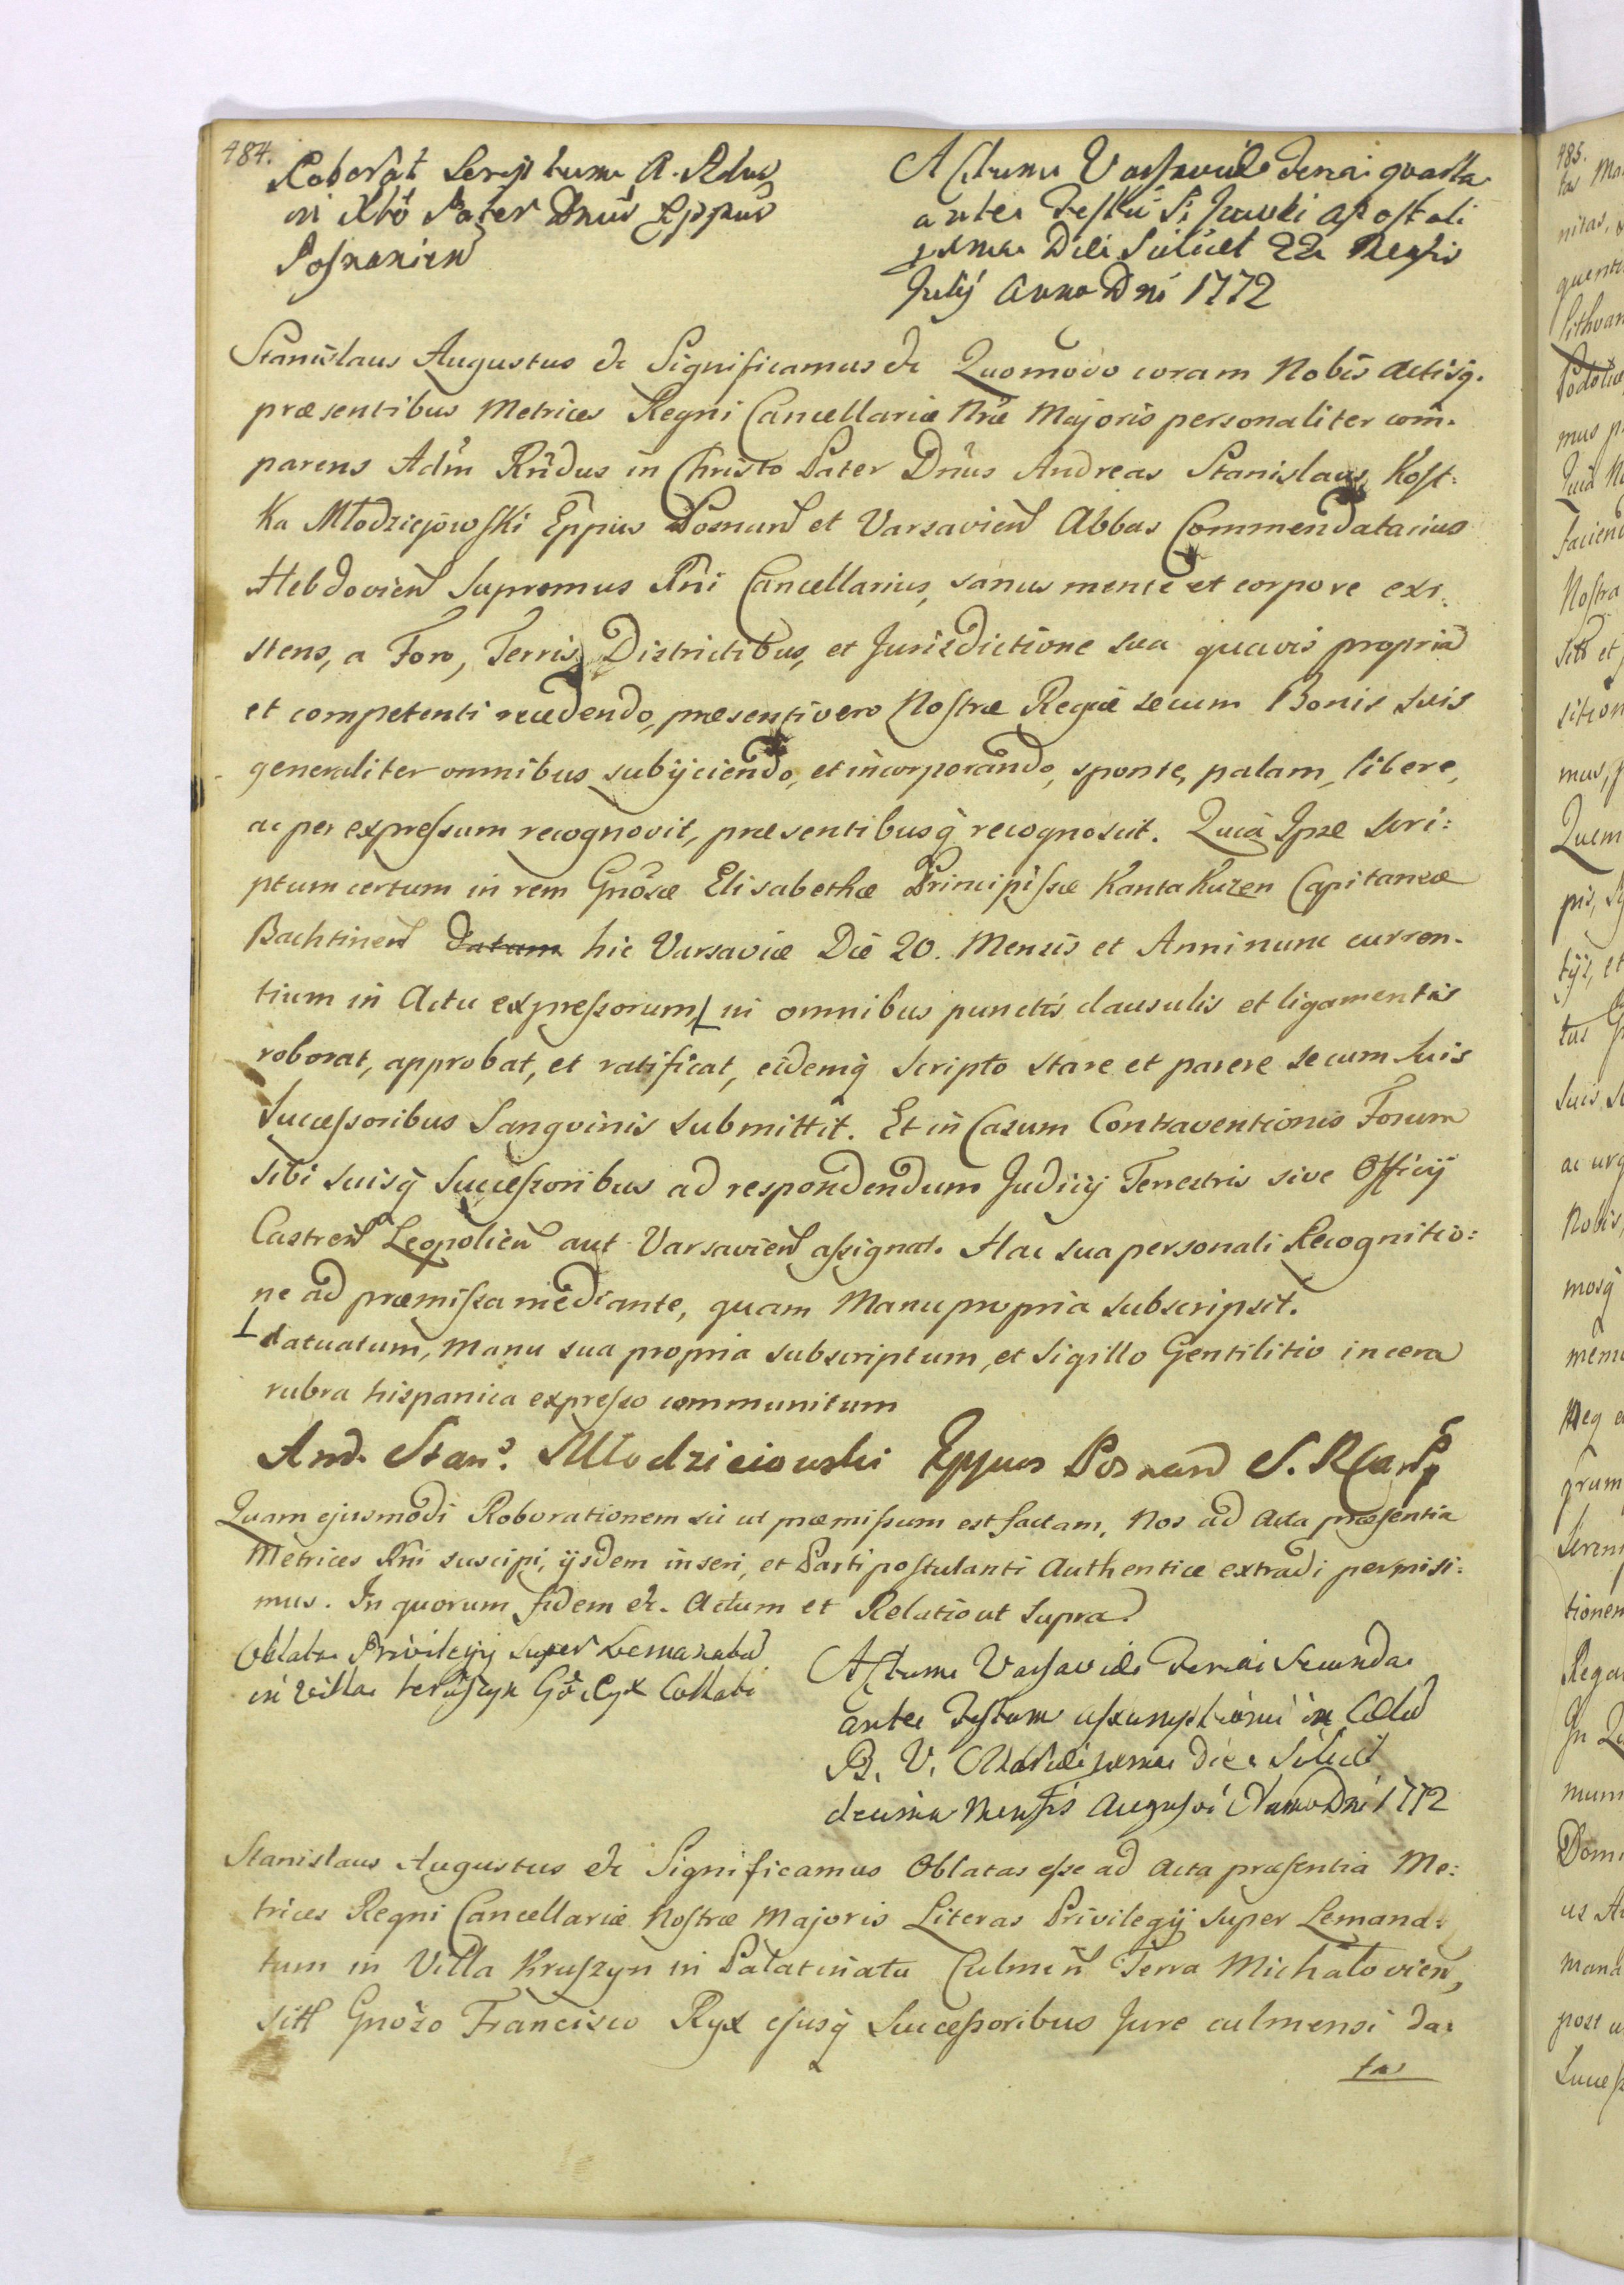 484.
Roborat Scriptum A. Rdus
in Xtô Pater Dnus Eppus
Posnanien
Actum Varsaviæ Feria quarta
ante Festũ S. Jacobi Apostoli
Die Scilicet 22 Mensis
Julij Anno Dni 1772
Stanislaus Augustus &c Significamus &c Quomodo coram Nobis Actisq.
præsentibus Metrices Regni Cancellariæ Nræ Majoris personaliter com-
parens Adm Rndus in Christo Pater Dnus Andreas Stanislaus Kost:
ka Młodziejowski Eppus Posnan et Varsavien Abbas Commendatarius
Hebdovien Supremus Rni Cancellarius, sanus mente et corpore exi:
stens, a Foro, Terris, Districtibus, et Jurisdictione sua quavis propria
et competenti recedendo, præsenti vero Nostræ Regiæ secum Bonis suis
generaliter omnibus subijciendo, et incorporando, sponte, palam, libere,
ac per expressum recognovit, præsentibusq recognoscit. Quia Ipse scri:
ptum certum in rem Gnosæ Elisabethæ Principissæ Kantakuzen Capitaneæ
Bachtinen datum hic Varsaviæ Die 20. Mensis et Anni nunc curren-
tium in Actu expressorum, in omnibus punctis clausulis et ligamentis
roborat, approbat, et ratificat, eidemq Scripto stare et parere secum suis
Successoribus Sangvinis submittit. Et in Casum Contraventionis Forum
sibi suisq Successoribus ad respondendum Judicij Terrestris sive Officij
Castren Leopolien aut Varsavien assignat. Hac sua personali Recognitio:
ne ad præmissa mediante, quam Manu propria subscripsit.
datuatum, Manu sua propria subscriptum, et Sigillo Gentilitio in cera
rubra hispanica expresso communitum
And. Stan. Młodzieiowski Eppus Posnan S. R.
Quam ejusmodi Roborationem sic ut præmissum est factam, Nos ad Acta præsentia
Metrices Rni suscipi, ijsdem inseri, et Parti postulanti Authentice extradi permisi:
mus. In quorum fidem &c. Actum et Relatio ut supra.
Oblata Privilegij super Lemanatum
in Villa Kruszyn Collati
Actum Varsaviæ Feria Secunda
ante Festum Assumptionis in Cœlũ
B. V. Mariæ Die Scilicet
decima Mensis Augusti Anno Dni 1772
Stanislaus Augustus &c Significamus Oblatas esse ad Acta præsentia Me:
trices Regni Cancellariæ Nostræ Majoris Literas Privilegij super Lemana:
tum in Villa Kruszyn in Palatinatu Culmen Terra Michałovien,
sitl Gnoso Francisco Ryx ejusq Successoribus Jure culmensi da:
tas